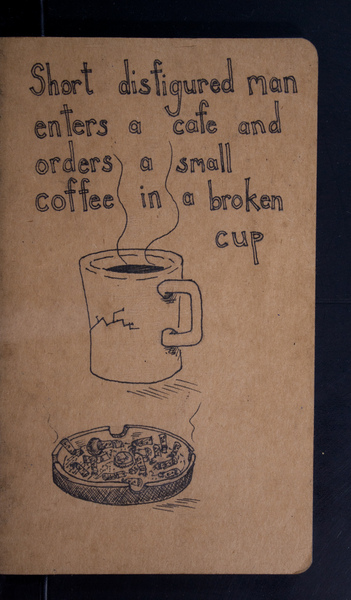 Short disfigured man
enters a cafe and
orders a small
coffee in a broken
cup